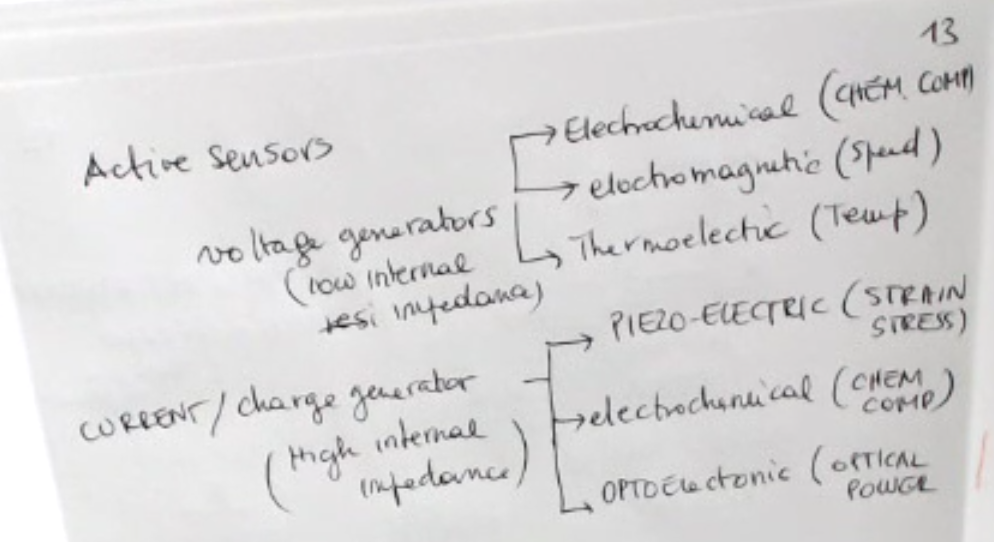 13
Active Sensors
voltage generators
(low internal
resi impedance)
Electrochemical (CHEM. COMP)
electromagnetic (Speed)
Thermoelectic (Temp)
CURRENT/charge generator
(High internal
impedance)
PIEZO-ELECTRIC (STRAIN
STRESS)
electrochemical (CHEM
COMP)
OPTOElectonic (OPTICAL
POWER